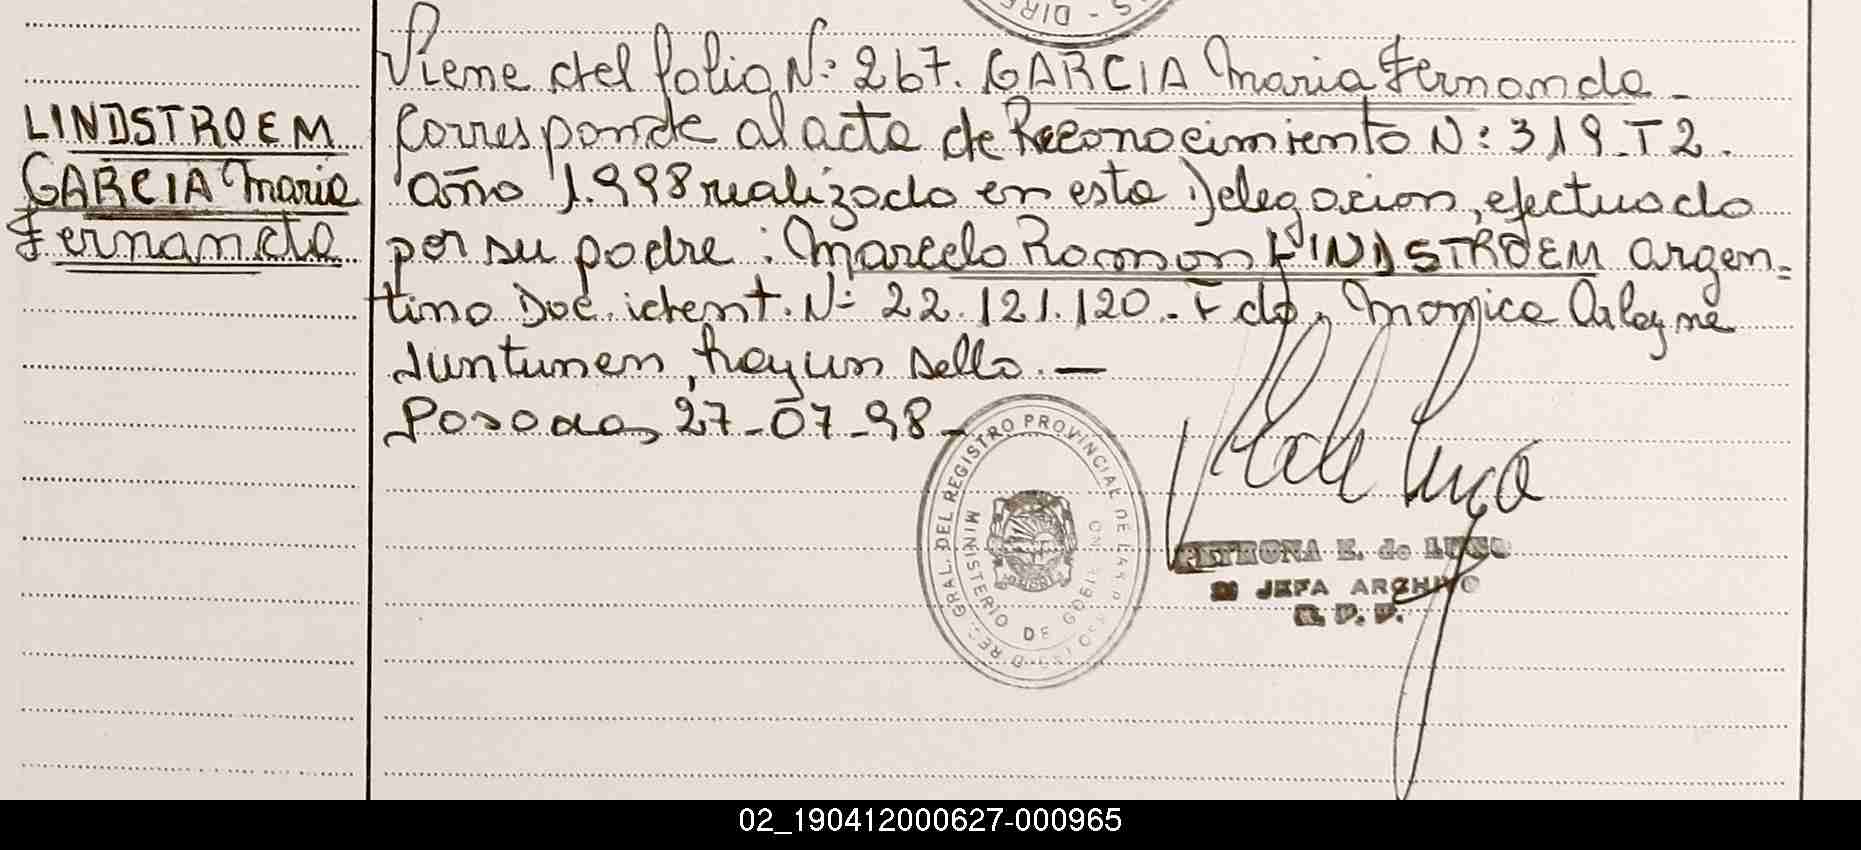 S - DIRE
Viene del folio Nº 267. GARCIA Maria Fernanda -
LINDSTROEM
GARCIA Maria
Fernanda
Corresponde al acta de Reconocimiento Nº 319 - T2.
año 1.998 realizado en esta Delegacion, efectuado
por su padre: Marcelo Ramon LINDSTROEM argen=
tino Doc. ident. Nº 22.121.120. Fdo, Monica
Juntunen, hay un sello. —
Posadas, 27-07-98 -
DIREC. GRAL. DEL REGISTRO PROVINCIAL DE LAS PERSONAS
MINISTERIO DE GOBIERNO
PETRONA E. de LUGO
JEFA ARCHIVO
R. P. P.
02_190412000627-000965